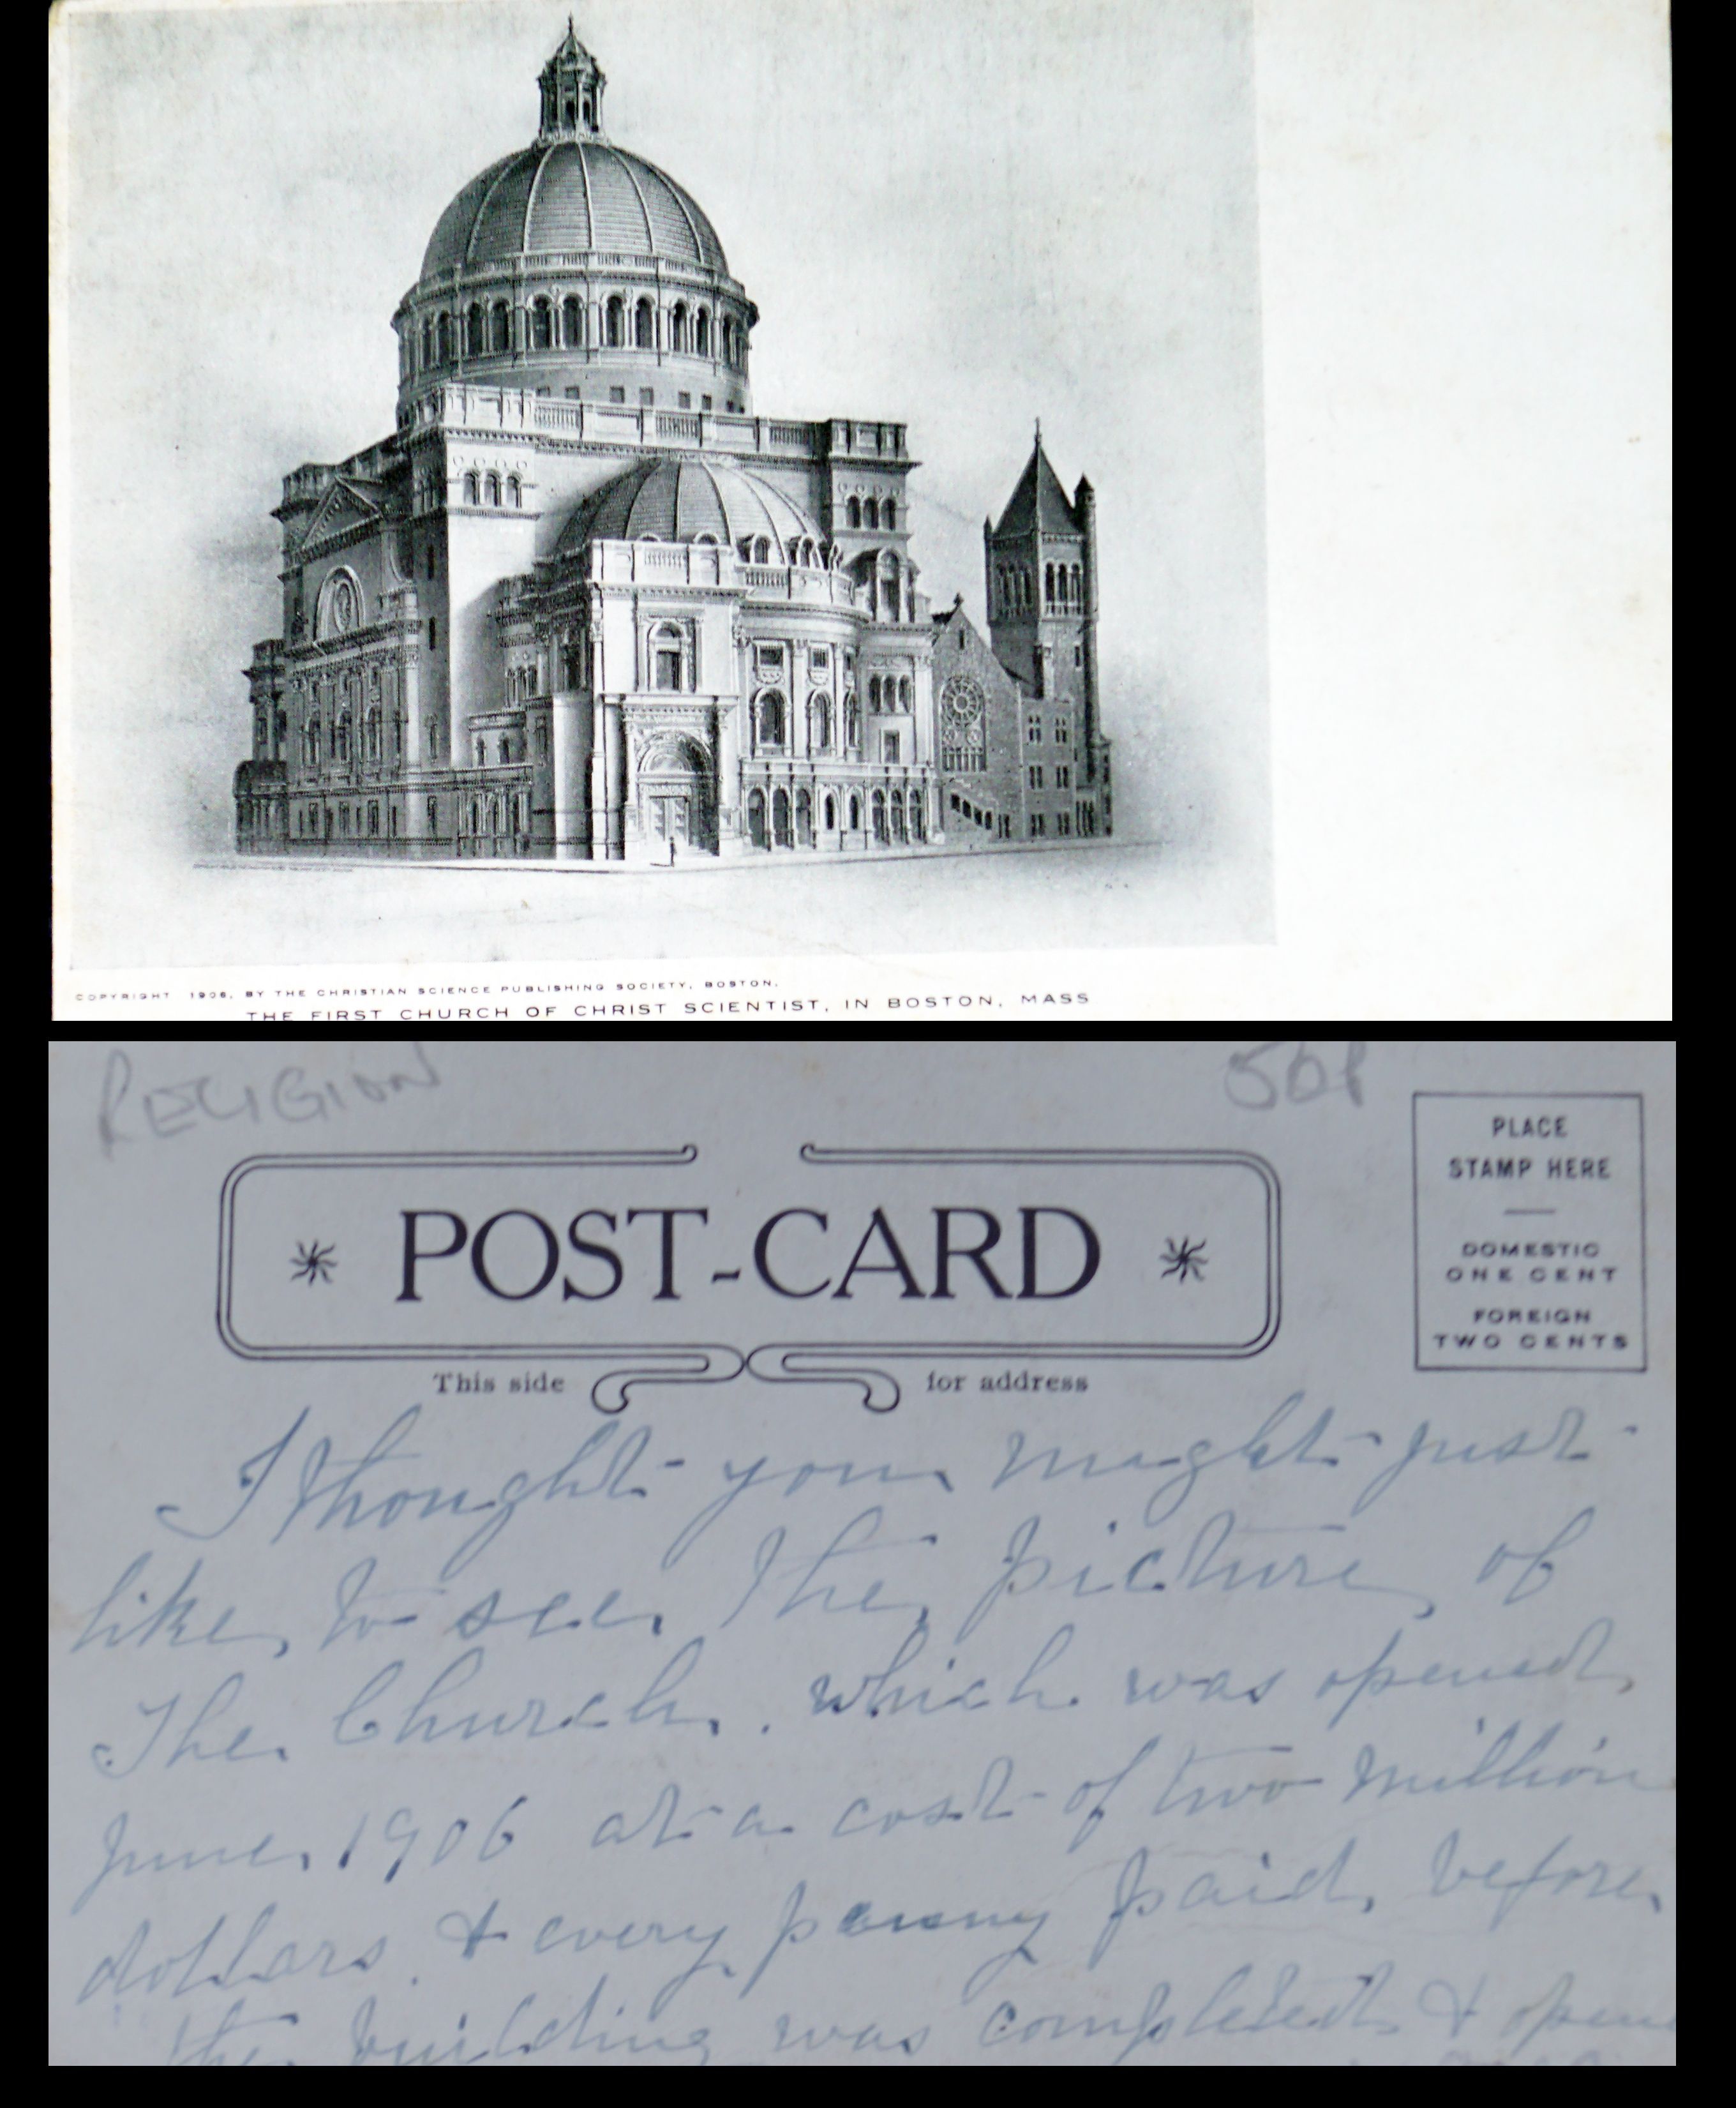 COPYRIGHT 1906, BY THE CHRISTIAN SCIENCE PUBLISHING SOCIETY, BOSTON.
THE FIRST CHURCH OF CHRIST SCIENTIST, IN BOSTON, MASS
RELIGION
50p
PLACE
STAMP HERE
DOMESTIC
ONE CENT
FOREIGN
TWO CENTS
POST-CARD
This side for address
I thought you might just
like to see the picture of
The Church. which was opened
June 1906 at a cost of two million
dollars. & every penny paid before
the building was completed & open